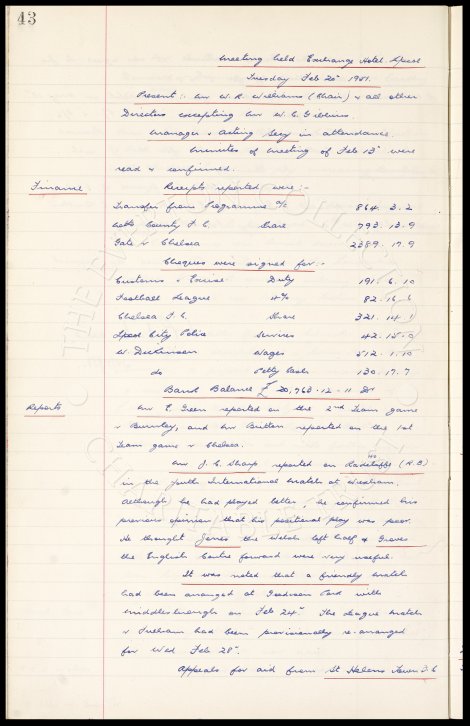 43
Meeting held Exchange Hotel L'pool
Tuesday Feb 20th 1951.
Present :- Mr W. R. Williams (Chair) & all other
Directors excepting Mr W. C. Gibbins.
Manager & Acting Secy in attendance.
Minutes of meeting of Feb 13th were
read & confirmed.
Finance Receipts reported were :-
Transfer from Programme a/c 864. 3. 2
Notts County F.C. Share 793. 13. 9
Gate v Chelsea 2389. 17. 9
Cheques were signed for :-
Customs & Excise Duty 191. 6. 10
Football League 4% 82. 16.
Chelsea F.C. Share 321. 14. 1
L'pool City Police Services 42. 15. 0
W. Dickinson Wages 512. 1. 10
do Petty Cash 130. 17. 7
Bank Balance £ 20,963 - 12 - 11 Dr
Reports Mr E. Green reported on the 2nd Team game
v Burnley, and Mr Britton reported on the 1st
Team game v Chelsea.
Mr J. C. Sharp reported on (R.B)
in the Youth International match at Wrexham.
Although he had played better, he confirmed his
previous opinion that his positional play was poor.
He thought Jones the Welsh left half & Graves
the English Centre forward were very useful.
It was noted that a friendly match
had been arranged at Goodison Park with
Middlesbrough on Feb 24th. The League match
v Fulham had been provisionally re-arranged
for Wed Feb 28th.
Appeals for aid from St Helens Town F.C